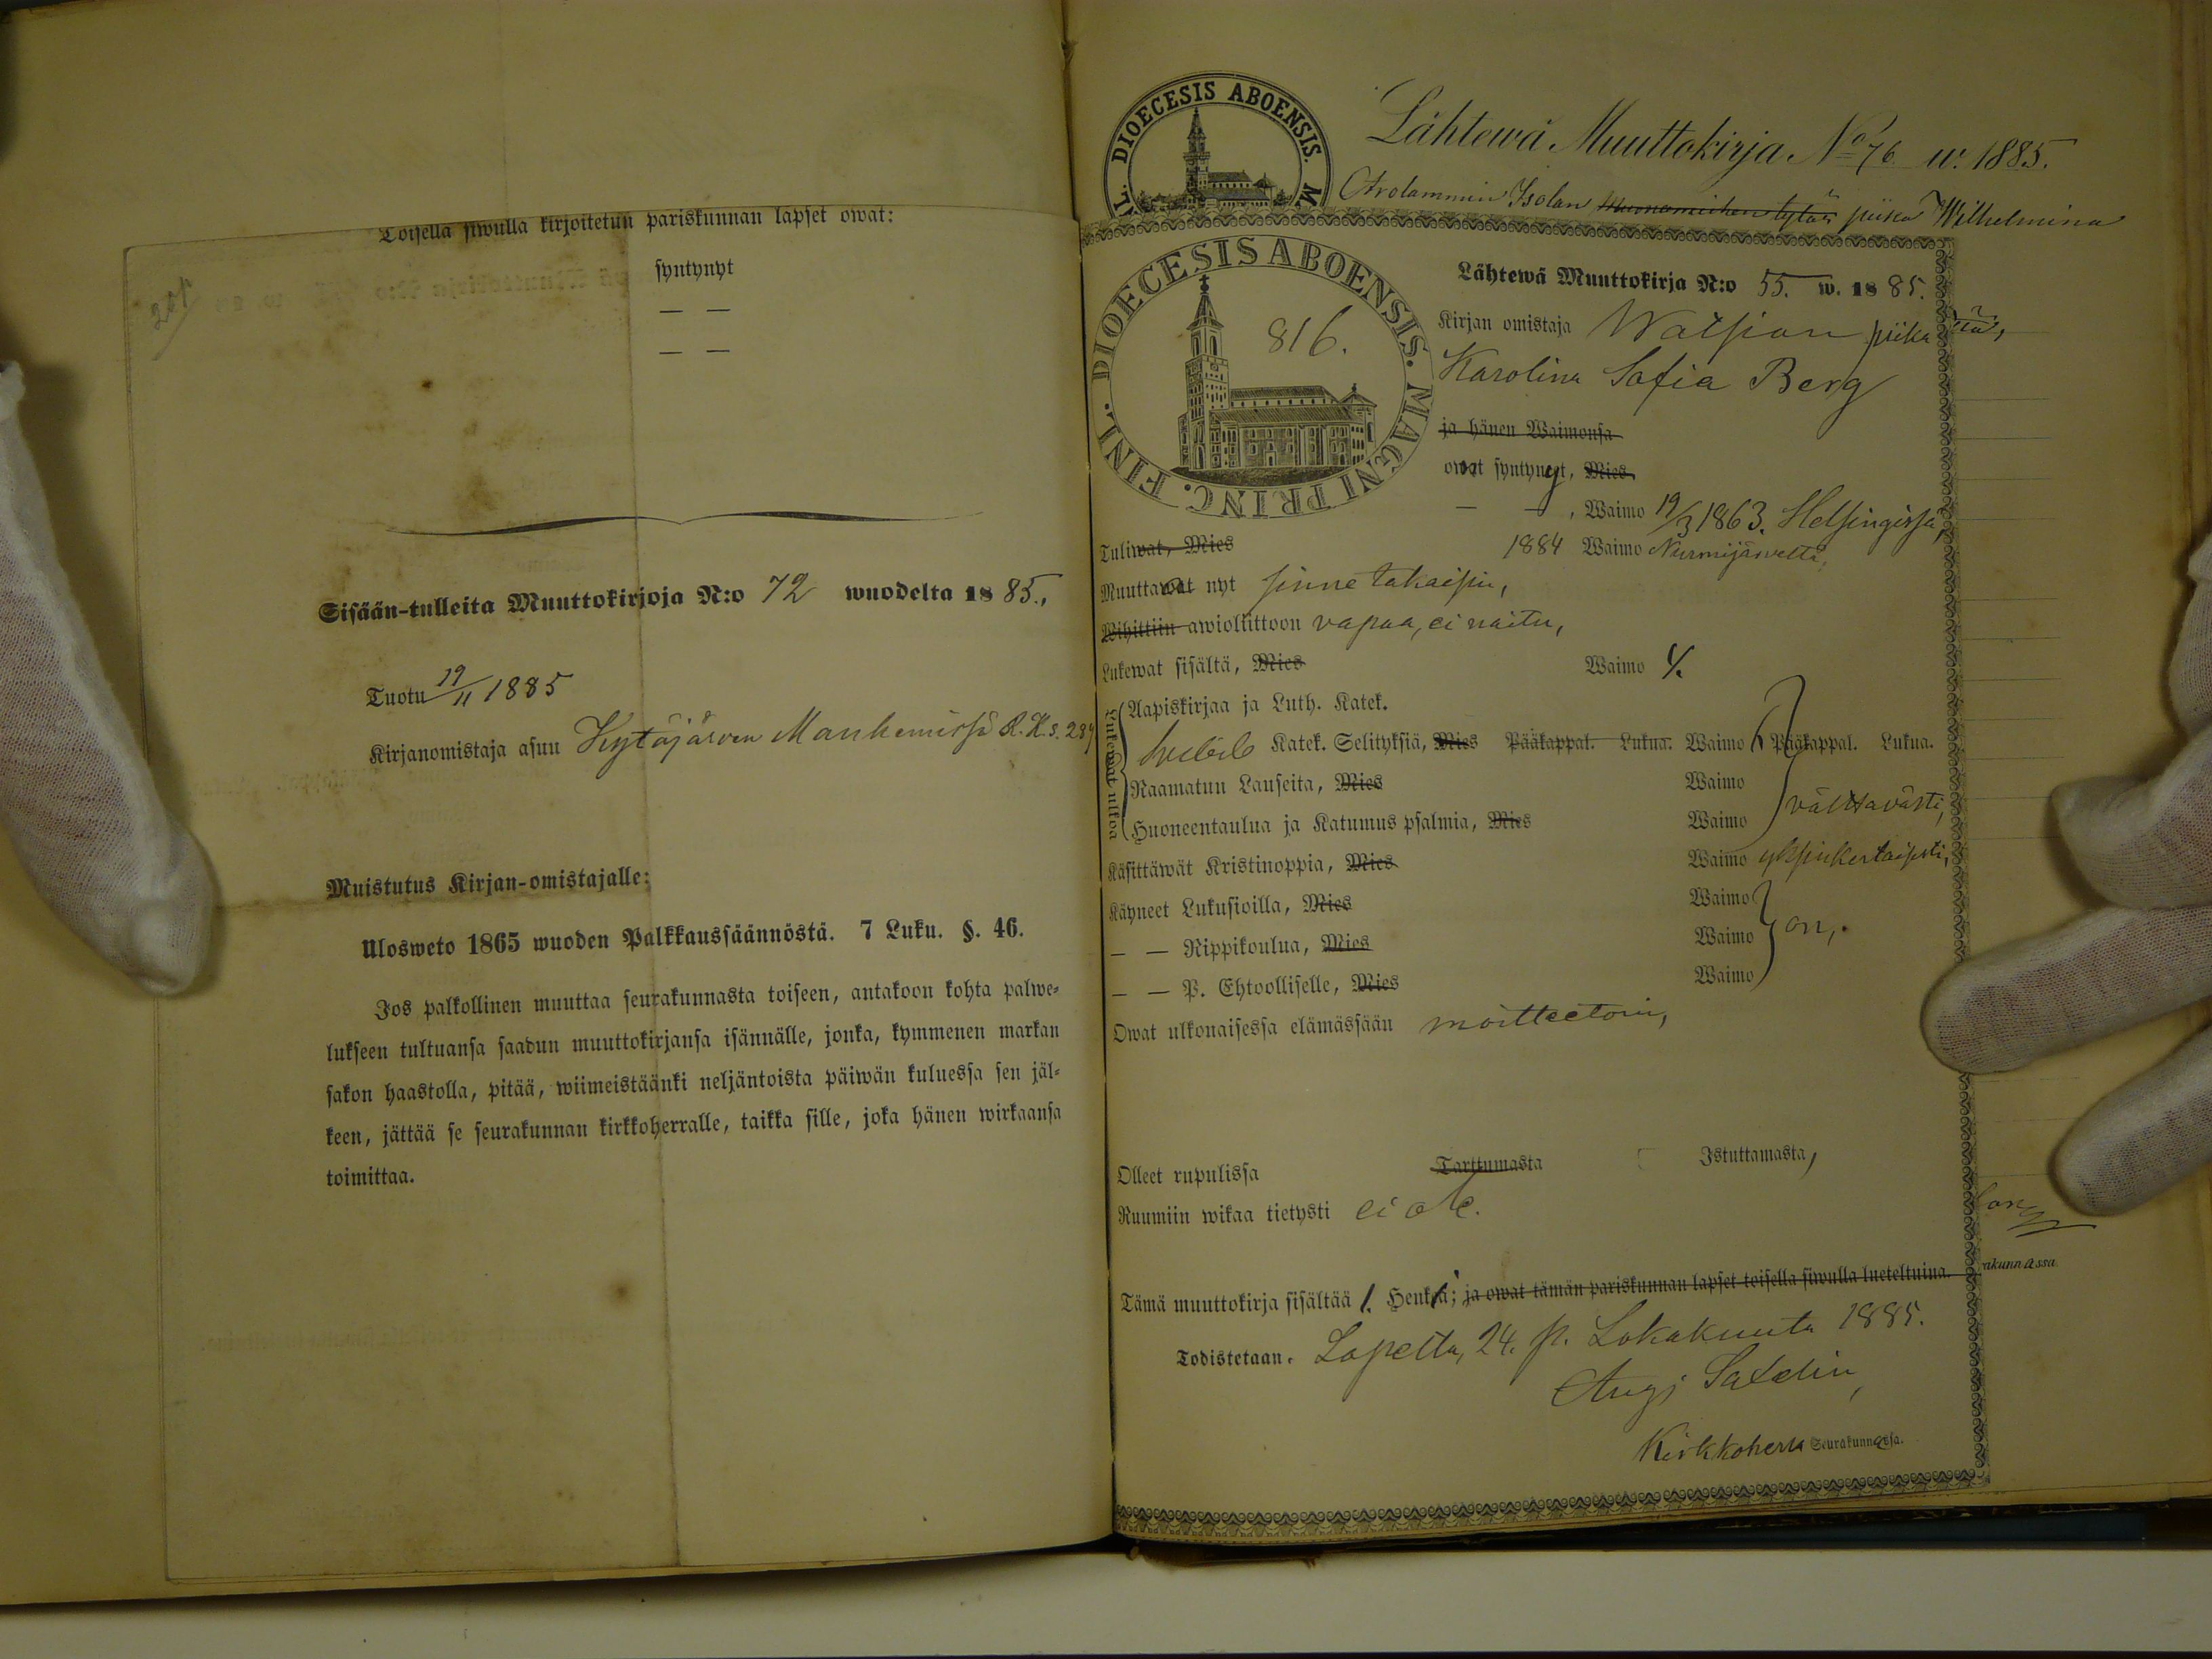 Toisella siwulla kirjoitetun pariskunnan lapset owat:
syntynyt
— —
— —
Sisään-tulleita Muuttokirjoja N:o 72 wuodelta 1885.,
Tuotu 19/11 1885
Kirjanomistaja asuu Kytäjärven Mankemissa R.K.s. 289
Muistutus Kirjan-omistajalle:
Ulosweto 1865 wuoden Palkkaussäännöstä. 7 Luku. §. 46.
Jos palkollinen muuttaa seurakunnasta toiseen, antakoon kohta palwe-
lukseen tultuansa saadun muuttokirjansa isännälle, jonka, kymmenen markan
sakon haastolla, pitää, wiimeistäänki neljäntoista päiwän kuluessa sen jäl-
keen, jättää se seurakunnan kirkkoherralle, taikka sille, joka hänen wirkaansa
toimittaa.
DIOECESIS ABOENSIS. M
Lähtewä Muuttokirja No 76 w. 1885.
Arolammin Isolan tytär piika Wilhelmina
DIOECESIS ABOENSIS. MAGNI PRINC. FINL.
816.
Lähtewä Muuttokirja N:o 55. w. 1885.
Kirjan omistaja Watsian piika
Karolina Sofia Berg
ja hänen Waimonsa
owat syntynyt, Mies
— —, Waimo 19/3 1863. Helsingissä,
Tuliwat, Mies 1884 Waimo Nurmijärveltä,
Muuttawat nyt sinne takaisin,
Wihittiin awioliittoon vapaa, ei naitu,
Lukewat sisältä, Mies Waimo
Lukewat ulkoa
Aapiskirjaa ja Luth. Katek.
Svebil. Katek. Selityksiä, Mies Pääkappal. Lukua. Waimo Pääkappal. Lukua.
Raamatun Lauseita, Mies Waimo
välttavästi,
Huoneentaulua ja Katumus psalmia, Mies Waimo
Käsittäwät Kristinoppia, Mies Waimo yksinkertaisesti,
Käyneet Lukusioilla, Mies Waimo
— — Rippikoulua, Mies Waimo on,
— — P. Ehtoolliselle, Mies Waimo
Owat ulkonaisessa elämässään moitteetoin,
Olleet rupulissa Tarttumasta Istuttamasta,
Ruumiin wikaa tietysti ei ole.
Tämä muuttokirja sisältää 1. Henkiä; ja owat tämän pariskunnan lapset toisella siwulla lueteltuina.
rakunnassa.
Todistetaan. Lopelta, 24. p. Lokakuuta 1885.
Kirkkoherra Seurakunnassa.